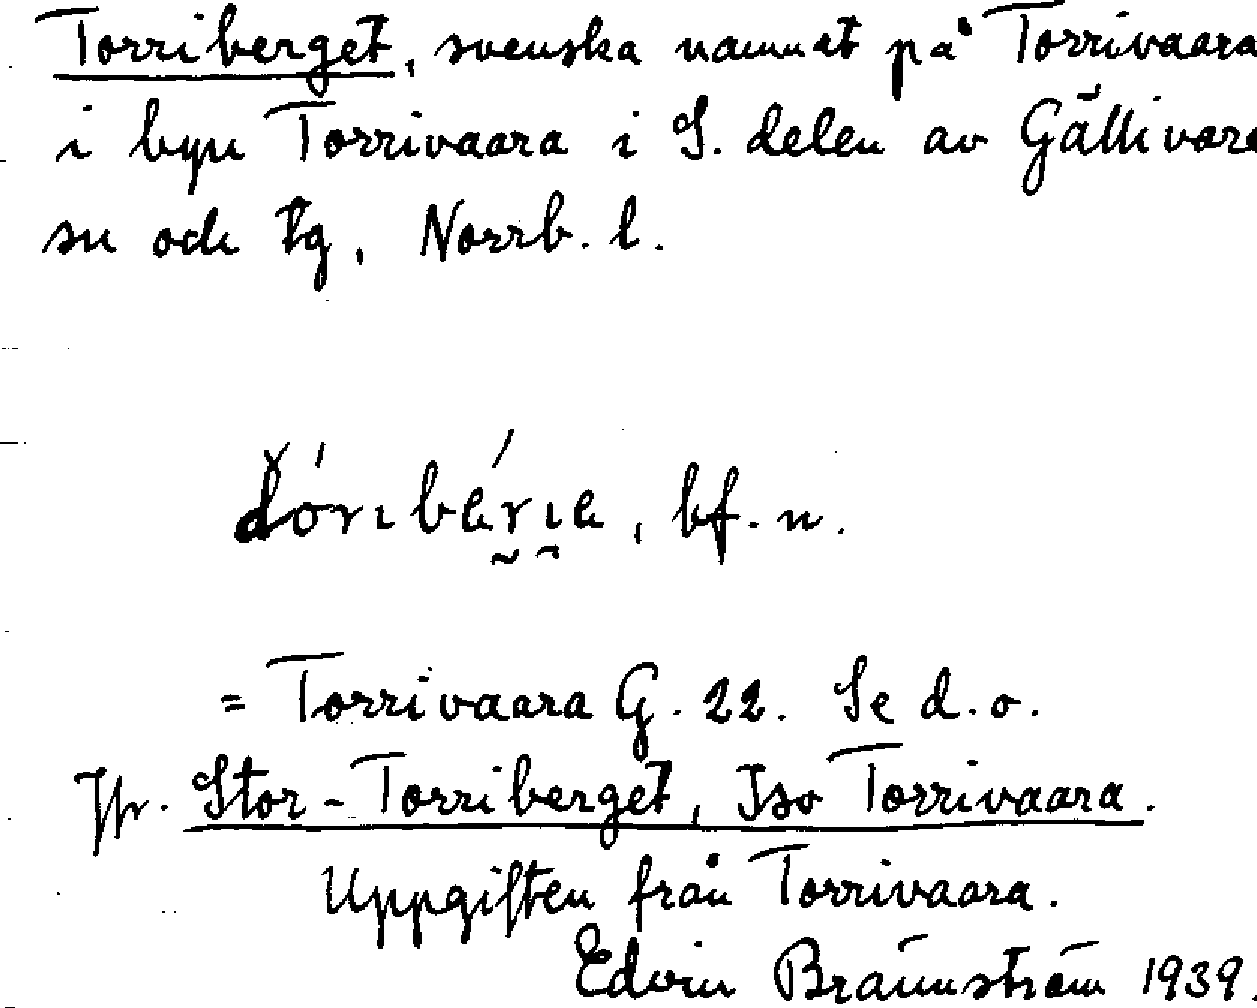 Torriberget, svenska namnet på Torrivaara
i byn Torrivaara i S. delen av Gällivare
sn och tg, Norrb. l.
bf. n.
= Torrivaara G. 22. Se d. o.
Jfr. Stor-Torriberget, Iso Torrivaara.
Uppgiften från Torrivaara.
Edvin Brännström 1939.